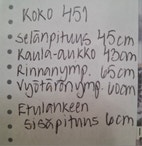 KOKO 451
selänpituus 45cm
Kaula-aukko 43cm
Rinnanymp. 65cm
Vyötärönymp. 60cm
Etulahkeen
sisäpituus 6cm